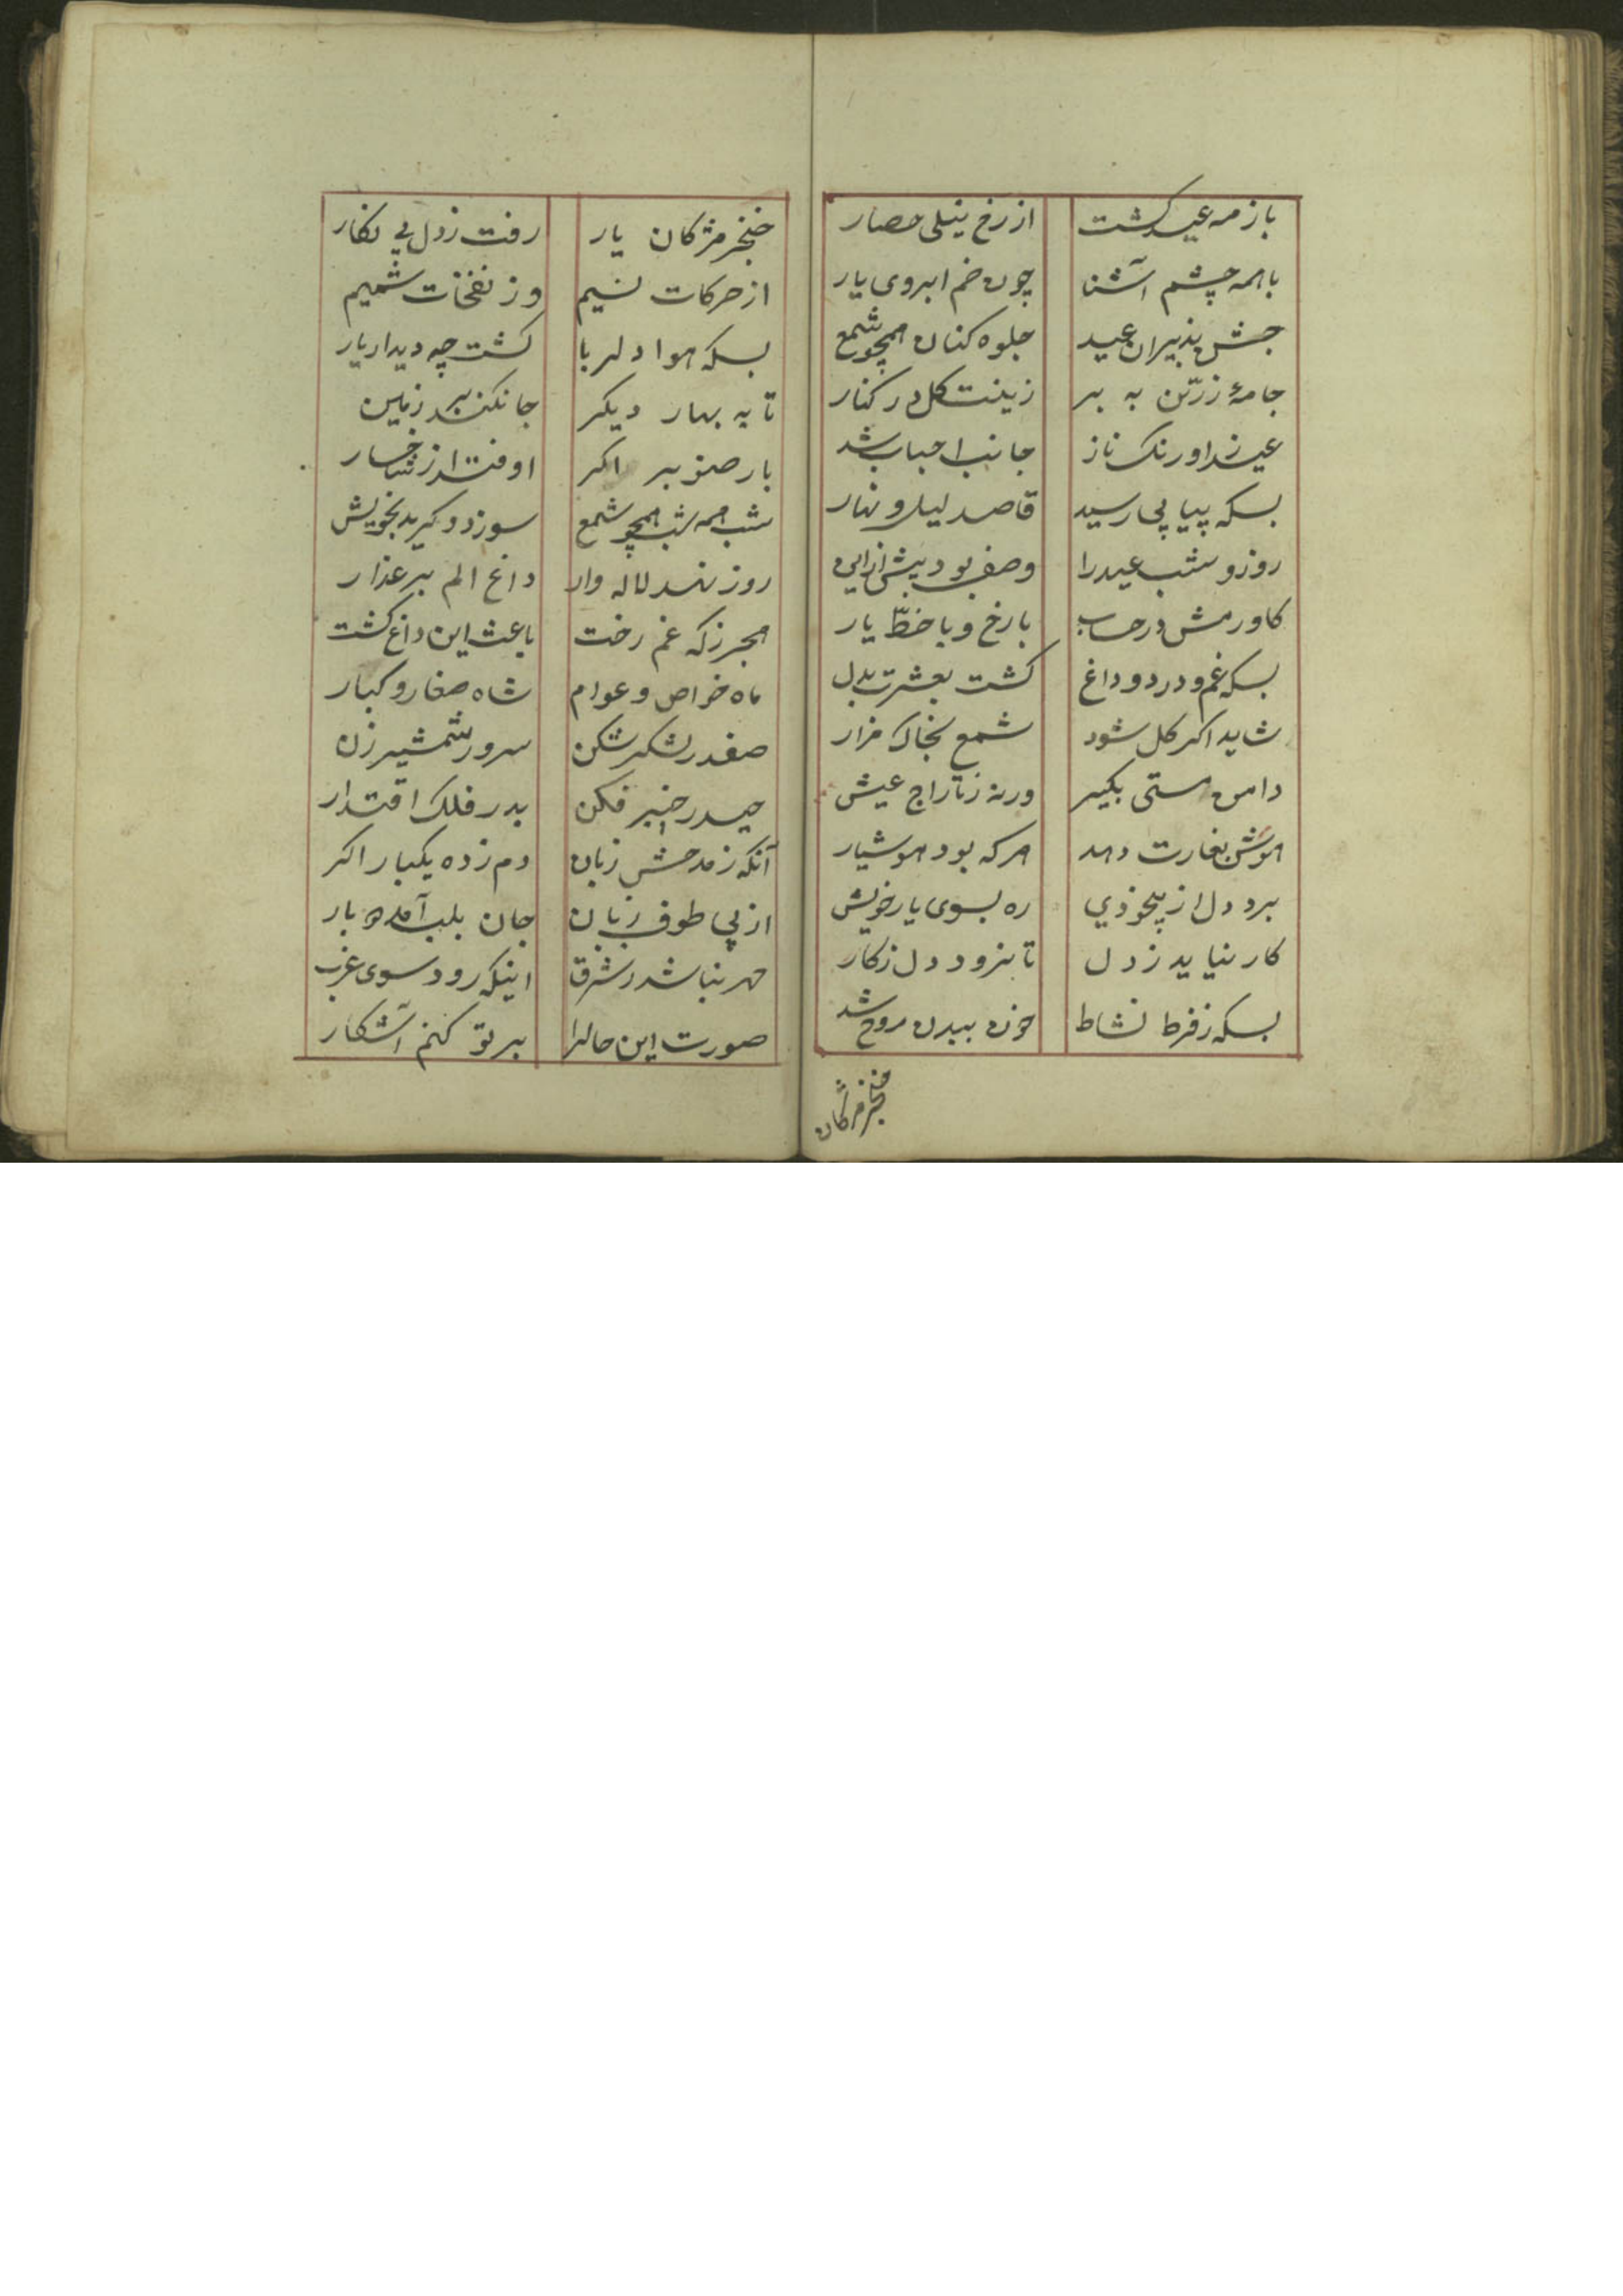 باز مه عید کشت از رخ نیلی حصار
با همه چشم آشنا چون خم ابروی یار
جشن پذیران عید جلوه کنان همچو شمع
جامهٔ زرّین به بر زینت کل در کنار
عید اورنک ناز جانب احباب شد
بسکه پیاپی رسید قاصد لیل و نهار
روز و شب عید را وصف بود بیش ازاین
کاورمش در حساب با رخ و با خطّ یار
بسکه غم و درد و داغ کشت بعشرت بدل
شاید اکر کل شود شمع بخاک مزار
دامن مستی بکیر ورنه ز تاراج عیش
هوشش بغارت دهد هر که بود هوشیار
برد دل از بیخودی ره بسوی یار خویش
کار نیاید ز دل تا نرود دل ز کار
بسکه ز فرط نشاط خون ببدن روح شد
خنجر مژکان
خنجر مژکان یار رفت ز دل بی نکار
از حرکات نسیم وز نفخات شمیم
بسکه هوا دلربا کشت چه دیدار یار
تا به بهار دیکر جا نکند بر زمین
بار صنوبر اکر اوفتد از شاخسار
شب همه شب همچو شمع سوزد و کرید بخویش
روز نهد لاله وار داغ الم بر عذار
هجر ز که غم رخت باعث این داغ کشت
ماه خواص و عوام شاه صغار و کبار
صفدر لشکر شکن سرور شمشیر زن
حیدر خیبر فکن بدر فلک اقتدار
آنکه ز مدحش زبان دم زده یکبار اکر
از پی طوف زبان جان بلب آمده بار
مهر نباشد ز شرق اینکه رود سوی غرب
صورت این حالرا بر تو کنم آشکار